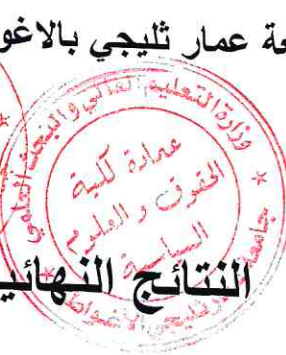 عة عمار ثليجي بالاغو
وزارة التعليم العالي والبحث العلمي
عمادة كلية
الحقوق و العلوم
السياسية
النتائج النهائي